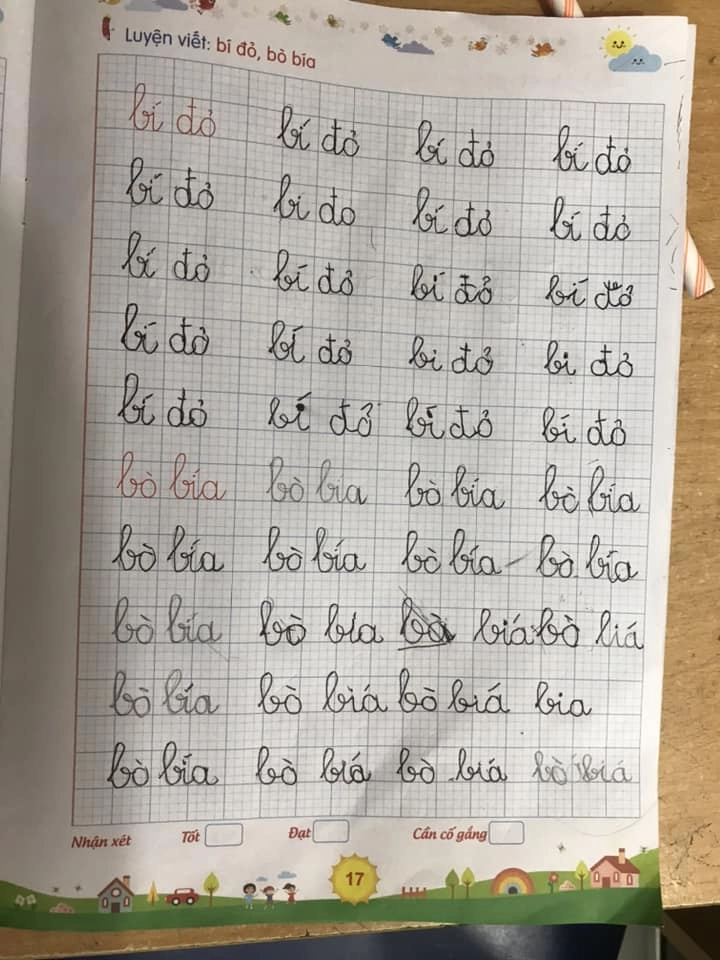 Luyện viết: bí đỏ, bò bía
bí đỏ bí đỏ bí đỏ bí đỏ
bí đỏ bí đo bí đỏ bí đỏ
bí đỏ bí đỏ bí đỏ bí đỏ
bí đỏ bí đỏ bi đỏ bi đỏ
bí đỏ bí đỏ bí đỏ bí đỏ
bò bía bò bía bò bía bò bía
bò bía bò bía bò bía bò bía
bò bía bò bía bò biá bò liá
bò bía bò biá bò biá bia
bò bía bò biá bò biá bò biá
Nhận xét Tốt Đạt Cần cố gắng
17